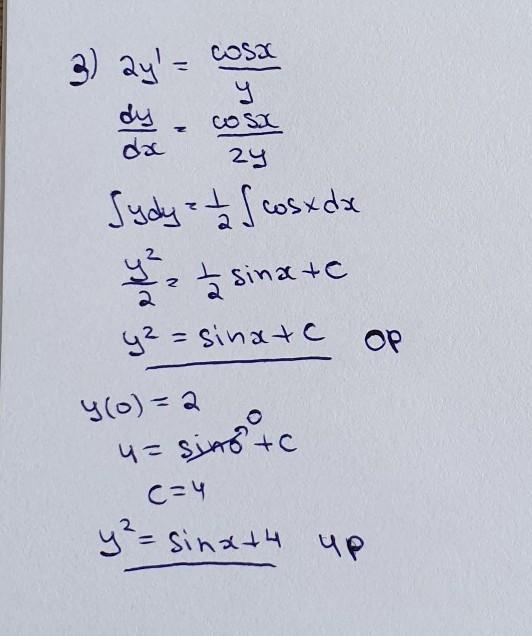 3) 2y' = cosx/y
dy/dx = cosx/2y
∫ydy = 1/2 ∫cosxdx
y²/2 = 1/2 sinx + C
y² = sinx + C ОР
y(0) = 2
4 = sin0 0 + C
C = 4
y² = sinx + 4 ЧР